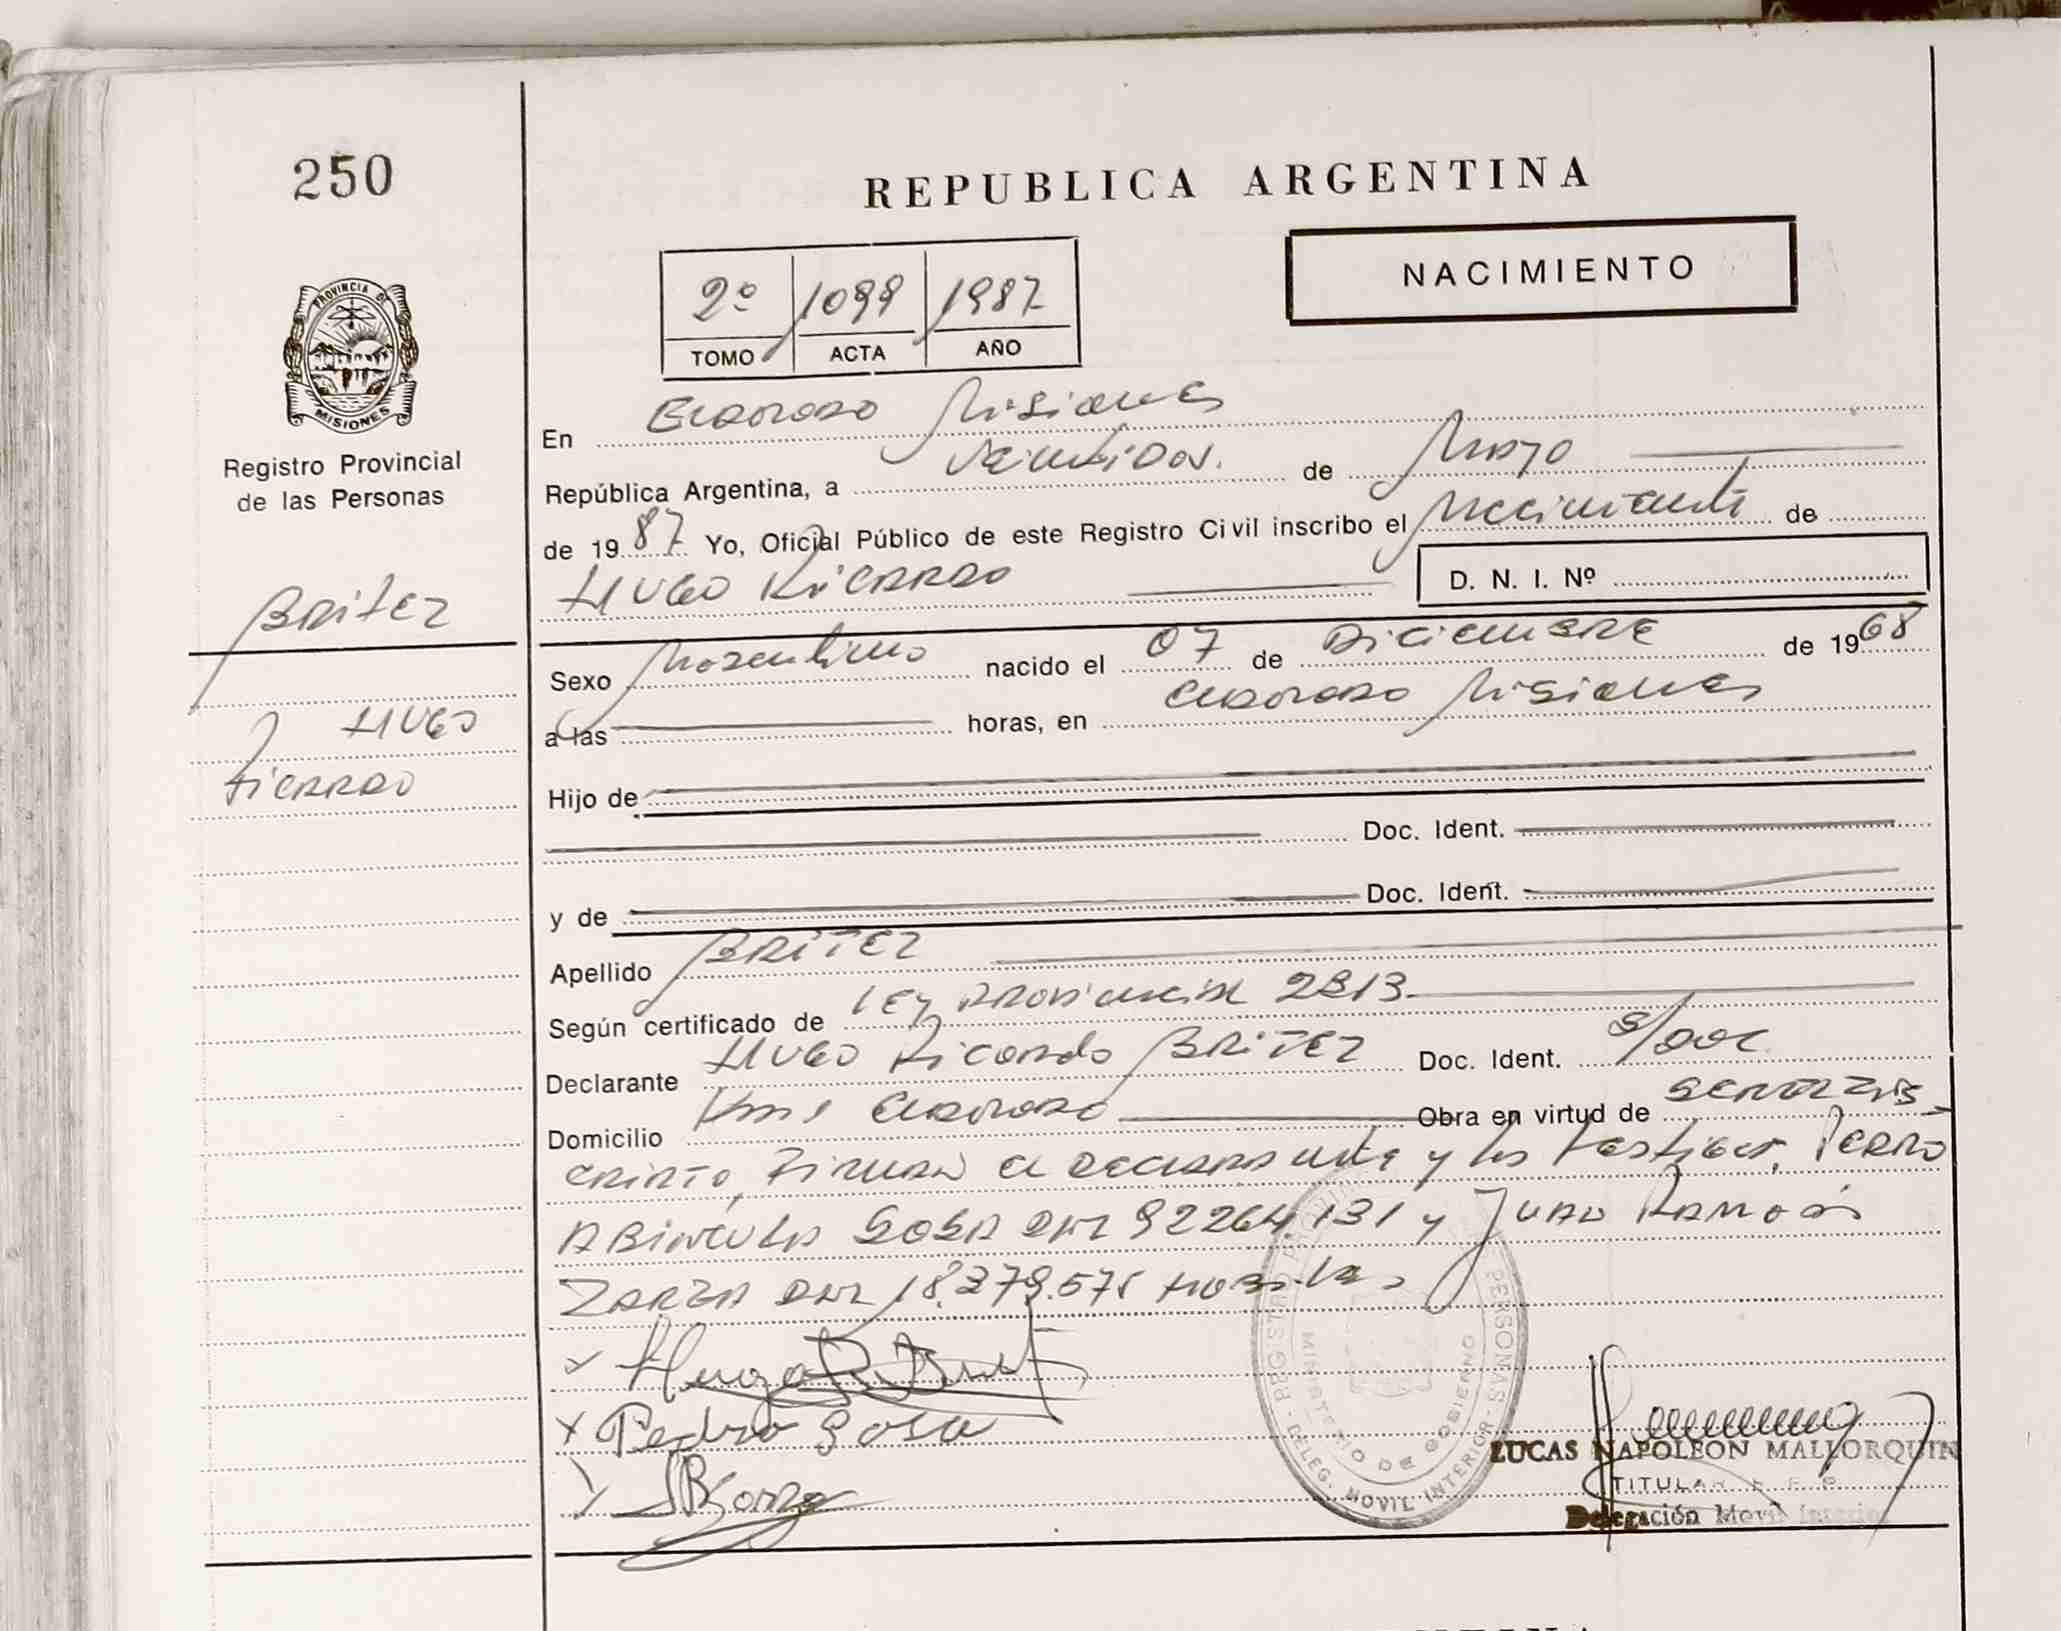 250
REPUBLICA ARGENTINA
NACIMIENTO
2º 1099 1987
TOMO ACTA AÑO
PROVINCIA DE
MISIONES
Registro Provincial
de las Personas
En Eldorado Misiones
República Argentina, a veintidos. de Mayo
de 1987 Yo, Oficial Público de este Registro Civil inscribo el Nacimiento de
HUGO RiCARDO D. N. I. Nº
BRiTEZ
Sexo Masculino nacido el 07 de DiCiEMBRE de 1968
a las horas, en Eldorado Misiones
HUGO
RiCARDO
Hijo de
Doc. Ident.
y de Doc. Ident.
Apellido BRiTEZ
Según certificado de LEY PROVinCiAL 2313
Declarante HUGO Ricardo BRiTEZ Doc. Ident. S/DOC
Domicilio Eldorado Obra en virtud de
Firman el Declarante y los testigos, PEDRO
SOSA DNI 92264.131 y JUAN RAMON
ZARZA DNI
Pedro Sosa
REGISTRO PERSONAS
MINISTERIO DE GOBIERNO
DELEG. MOVIL INTERIOR
LUCAS NAPOLEON MALLORQUIN
TITULAR
Delegación Movil Interior